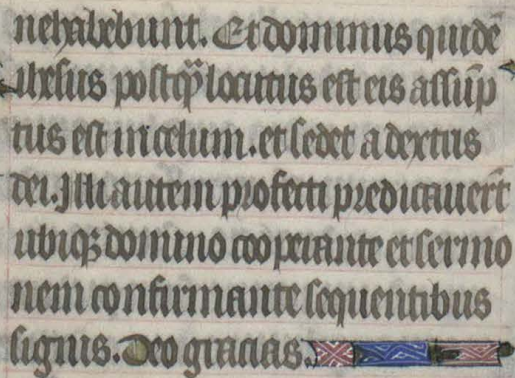 nehabebunt. Et dominus quidē
ihesus postqͣ̄ locutus est eis assūp
tus est in celum. et sedet a dextris
dei. Illi autem profecti predicauerūt
ubiqꝫ domino cooperante et sermo
nem confirmante sequentibus
signis. Deo gracias.